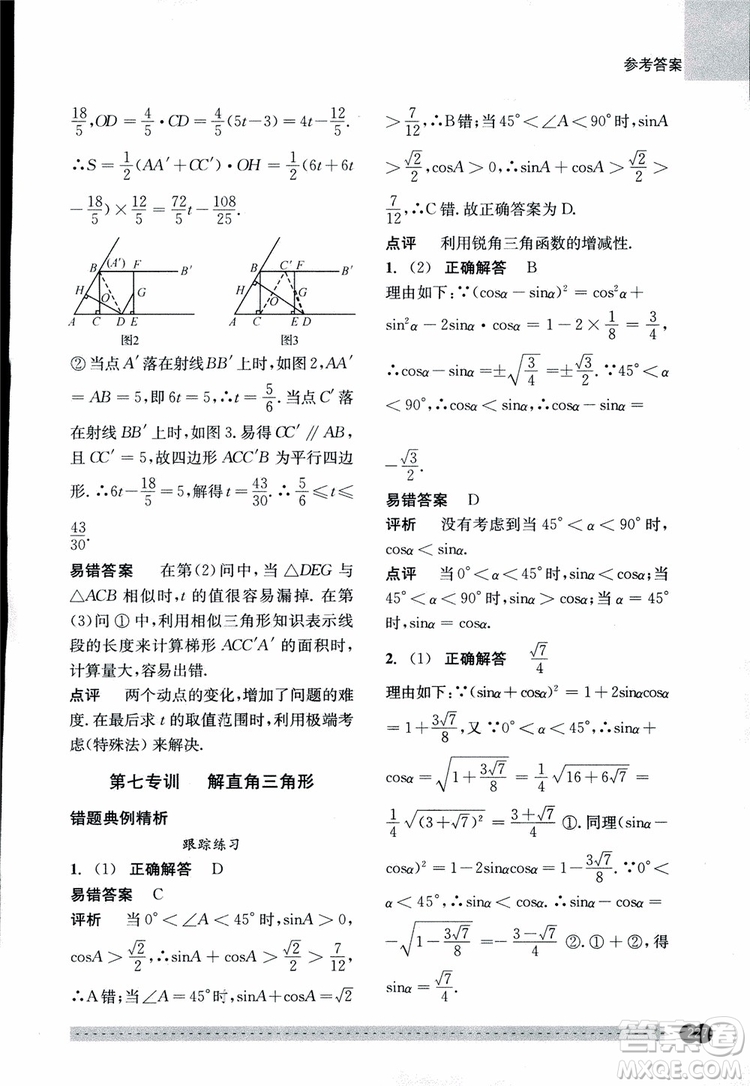 参考答案
18/5,OD=4/5·CD=4/5(5t-3)=4t-12/5.
∴S=1/2(AA′+CC′)·OH=1/2(6t+6t
-18/5)×12/5=72/5t-108/25.
B (A′) F B′
H O G
A C D E
图2
B C′ F B′
H O G
A C E D
图3
② 当点A′落在射线BB′上时,如图2,AA′
=AB=5,即6t=5,∴t=5/6.当点C′落
在射线BB′上时,如图3.易得CC′∥AB,
且CC′=5,故四边形ACC′B为平行四边
形.∴6t-18/5=5,解得t=43/30.∴5/6≤t≤
43/30.
易错答案 在第(2)问中,当△DEG与
△ACB相似时,t的值很容易漏掉.在第
(3)问①中,利用相似三角形知识表示线
段的长度来计算梯形ACC′A′的面积时,
计算量大,容易出错.
点评 两个动点的变化,增加了问题的难
度.在最后求t的取值范围时,利用极端考
虑(特殊法)来解决.
第七专训 解直角三角形
错题典例精析
跟踪练习
1.(1) 正确解答 D
易错答案 C
评析 当0°<∠A<45°时,sinA>0,
cosA>√2/2,∴sinA+cosA>√2/2>7/12,
∴A错;当∠A=45°时,sinA+cosA=√2
>7/12,∴B错;当45°<∠A<90°时,sinA
>√2/2,cosA>0,∴sinA+cosA>√2/2>
7/12,∴C错.故正确答案为D.
点评 利用锐角三角函数的增减性.
1.(2) 正确解答 B
理由如下:∵(cosα-sinα)²=cos²α+
sin²α-2cosα·sinα=1-2×1/8=3/4,
∴cosα-sinα=±√(3/4)=±√3/2.∵45°<α
<90°,∴cosα<sinα.∴cosα-sinα=
-√3/2.
易错答案 D
评析 没有考虑到当45°<α<90°时,
cosα<sinα.
点评 当0°<α<45°时,sinα<cosα;当
45°<α<90°时,sinα>cosα;当α=45°
时,sinα=cosα.
2.(1) 正确解答 √7/4
理由如下:∵(sinα+cosα)²=1+2sinαcosα
=1+3√7/8,又∵0°<α<45°,∴sinα+
cosα=√(1+3√7/8)=1/4√(16+6√7)=
1/4√((3+√7)²)=(3+√7)/4①.同理(sinα-
cosα)²=1-2sinαcosα=1-3√7/8.∵0°<α
<45°,∴sinα<cosα.∴sinα-cosα=
-√(1-3√7/8)=-(3-√7)/4②.①+②,得
sinα=√7/4.
答案圈